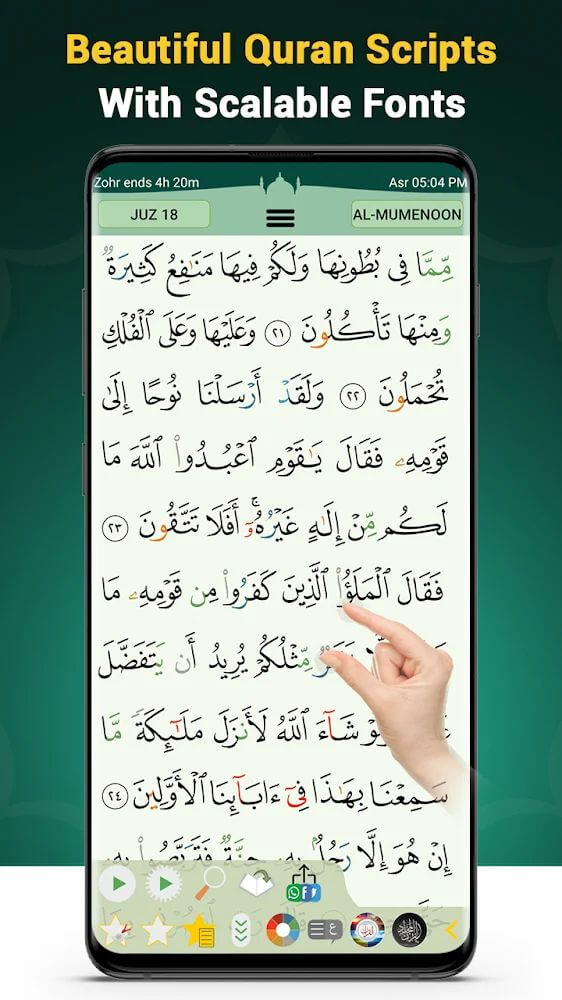 Beautiful Quran Scripts
With Scalable Fonts
Zohr ends 4h 20m
Asr 05:04 PM
JUZ 18
AL-MUMENOON
مِّمَّا فِى بُطُونِهَا وَلَكُمْ فِيهَا مَنَـٰفِعُ كَثِيرَةٌ
وَمِنْهَا تَأْكُلُونَ ٢١ وَعَلَيْهَا وَعَلَى ٱلْفُلْكِ
تُحْمَلُونَ ٢٢ وَلَقَدْ أَرْسَلْنَا نُوحًا إِلَىٰ
قَوْمِهِۦ فَقَالَ يَـٰقَوْمِ ٱعْبُدُوا۟ ٱللَّهَ مَا
لَكُم مِّنْ إِلَـٰهٍ غَيْرُهُۥٓ ۚ أَفَلَا تَتَّقُونَ ٢٣
فَقَالَ ٱلْمَلَؤُا۟ ٱلَّذِينَ كَفَرُوا۟ مِن قَوْمِهِۦ مَا
مِّثْلُكُمْ يُرِيدُ أَن يَتَفَضَّلَ
شَآءَ ٱللَّهُ لَأَنزَلَ مَلَـٰٓئِكَةً مَّا
سَمِعْنَا بِهَـٰذَا فِىٓ ءَابَآئِنَا ٱلْأَوَّلِينَ ٢٤
إِنْ هُوَ إِلَّا رَجُلٌۢ بِهِۦ جِنَّةٌ فَتَرَبَّصُوا۟ بِهِۦ